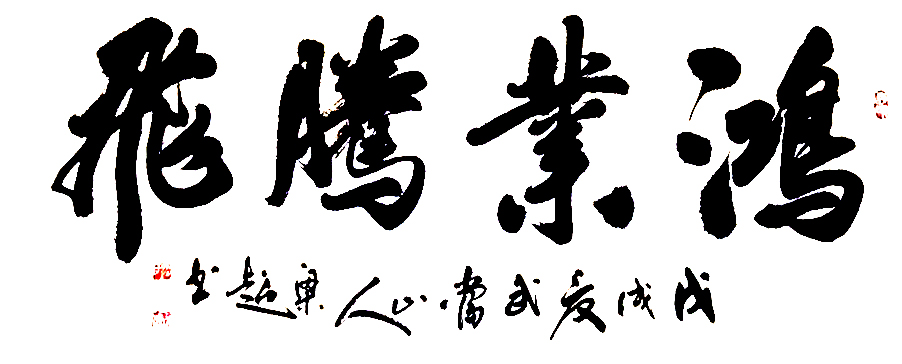 鴻業騰飛
戊戌夏武當山人梁超书